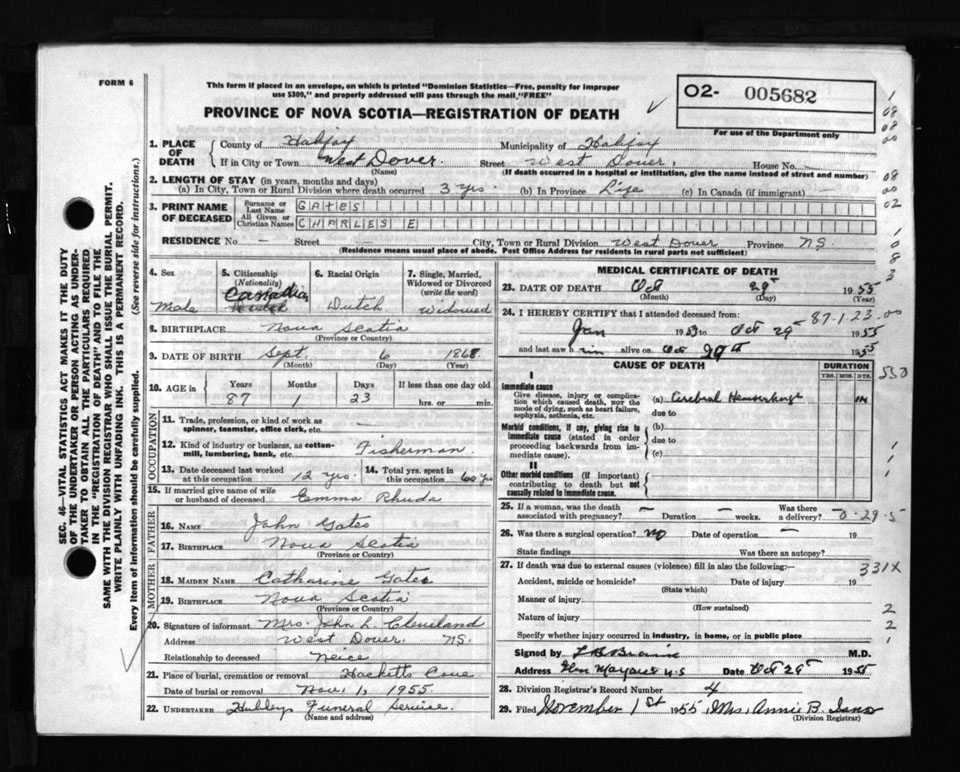 FORM 6
This form if placed in an envelope, on which is printed "Dominion Statistics—Free, penalty for improper
use $300," and properly addressed will pass through the mail "FREE"
PROVINCE OF NOVA SCOTIA—REGISTRATION OF DEATH
O2- 005682
For use of the Department only
1. PLACE OF DEATH
County of Halifax Municipality of Halifax
If in City or Town West Dover. Street West Dover, House No.
(Name) (If death occurred in a hospital or institution, give the name instead of street and number)
2. LENGTH OF STAY (in years, months and days)
(a) In City, Town or Rural Division where death occurred 3 yrs. (b) In Province Life (c) In Canada (if immigrant) —
3. PRINT NAME OF DECEASED
Surname or Last Name GATES
All Given or Christian Names CHARLES E
RESIDENCE No — Street — City, Town or Rural Division West Dover Province NS
(Residence means usual place of abode. Post Office Address for residents in rural parts not sufficient)
4. Sex
Male
5. Citizenship
(Nationality)
Canadian
Dutch
6. Racial Origin
Dutch
7. Single, Married,
Widowed or Divorced
(write the word)
Widowed
8. BIRTHPLACE Nova Scotia
(Province or Country)
9. DATE OF BIRTH Sept. 6 1868
(Month) (Day) (Year)
10. AGE in Years Months Days If less than one day old
87 1 23 hrs. or min.
OCCUPATION
11. Trade, profession, or kind of work as
spinner, teamster, office clerk, etc. —
12. Kind of industry or business, as cotton-
mill, lumbering, bank, etc. Fisherman.
13. Date deceased last worked
at this occupation 12 yrs.
14. Total yrs. spent in
this occupation 60 yrs
15. If married give name of wife
or husband of deceased Emma Rhuda
FATHER
16. NAME John Gates
17. BIRTHPLACE Nova Scotia
(Province or Country)
MOTHER
18. MAIDEN NAME Catharine Gates
19. BIRTHPLACE Nova Scotia
(Province or Country)
20. Signature of informant Mrs. John L. Cleveland
Address West Dover. NS.
Relationship to deceased Neice
21. Place of burial, cremation or removal Hacketts Cove
Date of burial or removal Nov. 1, 1955
22. UNDERTAKER Hubleys Funeral Service.
(Name and address)
MEDICAL CERTIFICATE OF DEATH
23. DATE OF DEATH Oct 29th 1955
(Month) (Day) (Year)
24. I HEREBY CERTIFY that I attended deceased from:
87-1-23-00
Jan 1953 to Oct 29th 1955
and last saw him alive on Oct 29th 1955
CAUSE OF DEATH
DURATION
YRS. MOS. DYS.
I
Immediate cause
Give disease, injury or complica-
tion which caused death, not the
mode of dying, such as heart failure,
asphyxia, asthenia, etc.
(a) Cerebral Hemorrhage
due to
Morbid conditions, if any, giving rise to
immediate cause (stated in order
proceeding backwards from im-
mediate cause).
(b)
due to
(c)
II
Other morbid conditions (if important)
contributing to death but not
causally related to immediate cause.
25. If a woman, was the death
associated with pregnancy? — Duration — weeks. Was there
a delivery?
0-29-5
26. Was there a surgical operation? no Date of operation — 19
State findings Was there an autopsy?
27. If death was due to external causes (violence) fill in also the following:—
331X
Accident, suicide or homicide? Date of injury 19
(State which)
Manner of injury
(How sustained)
Nature of injury
Specify whether injury occurred in industry, in home, or in public place
Signed by M.D.
Address Date Oct 29th 1955
28. Division Registrar's Record Number 4
29. Filed November 1st 1955, Mrs. Annie B.
(Division Registrar)
SEC. 46—VITAL STATISTICS ACT MAKES IT THE DUTY
OF THE UNDERTAKER OR PERSON ACTING AS UNDER-
TAKER TO OBTAIN ALL THE PARTICULARS REQUIRED
IN THE "REGISTRATION OF DEATH" AND TO FILE THE
SAME WITH THE DIVISION REGISTRAR WHO SHALL ISSUE THE BURIAL PERMIT.
WRITE PLAINLY WITH UNFADING INK. THIS IS A PERMANENT RECORD.
Every item of information should be carefully supplied. (See reverse side for instructions.)